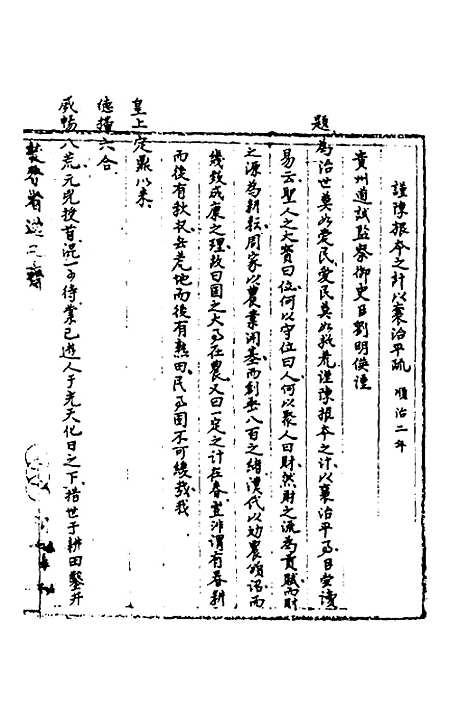 謹陳根本之計以襄治平疏 順治二年
貴州道試監察御史臣劉明偀謹
題為治世莫如愛民愛民莫如救荒謹陳根本之計以襄治平事臣嘗讀
易云聖人之大寶曰位何以守位曰人何以聚人曰財然財之流為貢賦而財
之源為耕耘周家以農業開基而創垂八百之緒漢代以劝農頒詔而
幾致成康之理故曰國之大事在農又曰一定之計在春豈非謂有春耕
而後有秋収無荒地而後有熟田民事固不可緩哉我
皇上定鼎以来
德播六合
威暢八荒元兇授首混一可待業已遊人于光天化日之下措世于耕田鑿井